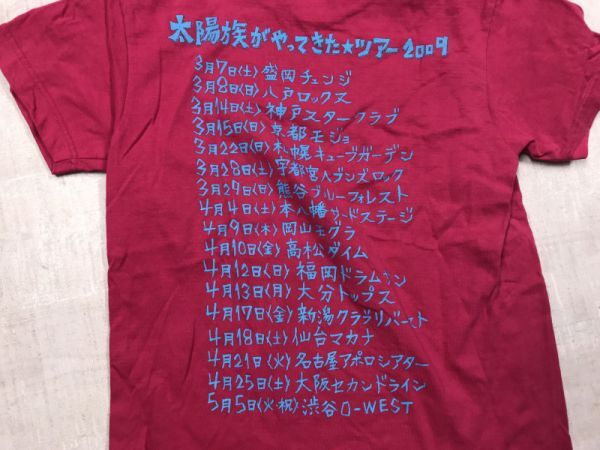 太陽族がやってきた★ツアー2009
3月7日(土)盛岡チェンジ
3月8日(日)八戸ロックス
3月14日(土)神戸スタークラブ
3月15日(日)京都モジョ
3月22日(日)札幌キューブガーデン
3月28日(土)宇都宮ヘブンズロック
3月29日(日)熊谷ブルーフォレスト
4月4日(土)本八幡サードステージ
4月9日(木)岡山モグラ
4月10日(金)高松ダイム
4月12日(日)福岡ドラムサン
4月13日(月)大分トップス
4月17日(金)新潟クラブリバースト
4月18日(土)仙台マカナ
4月21日(火)名古屋アポロシアター
4月25日(土)大阪セカンドライン
5月5日(火・祝)渋谷O-WEST